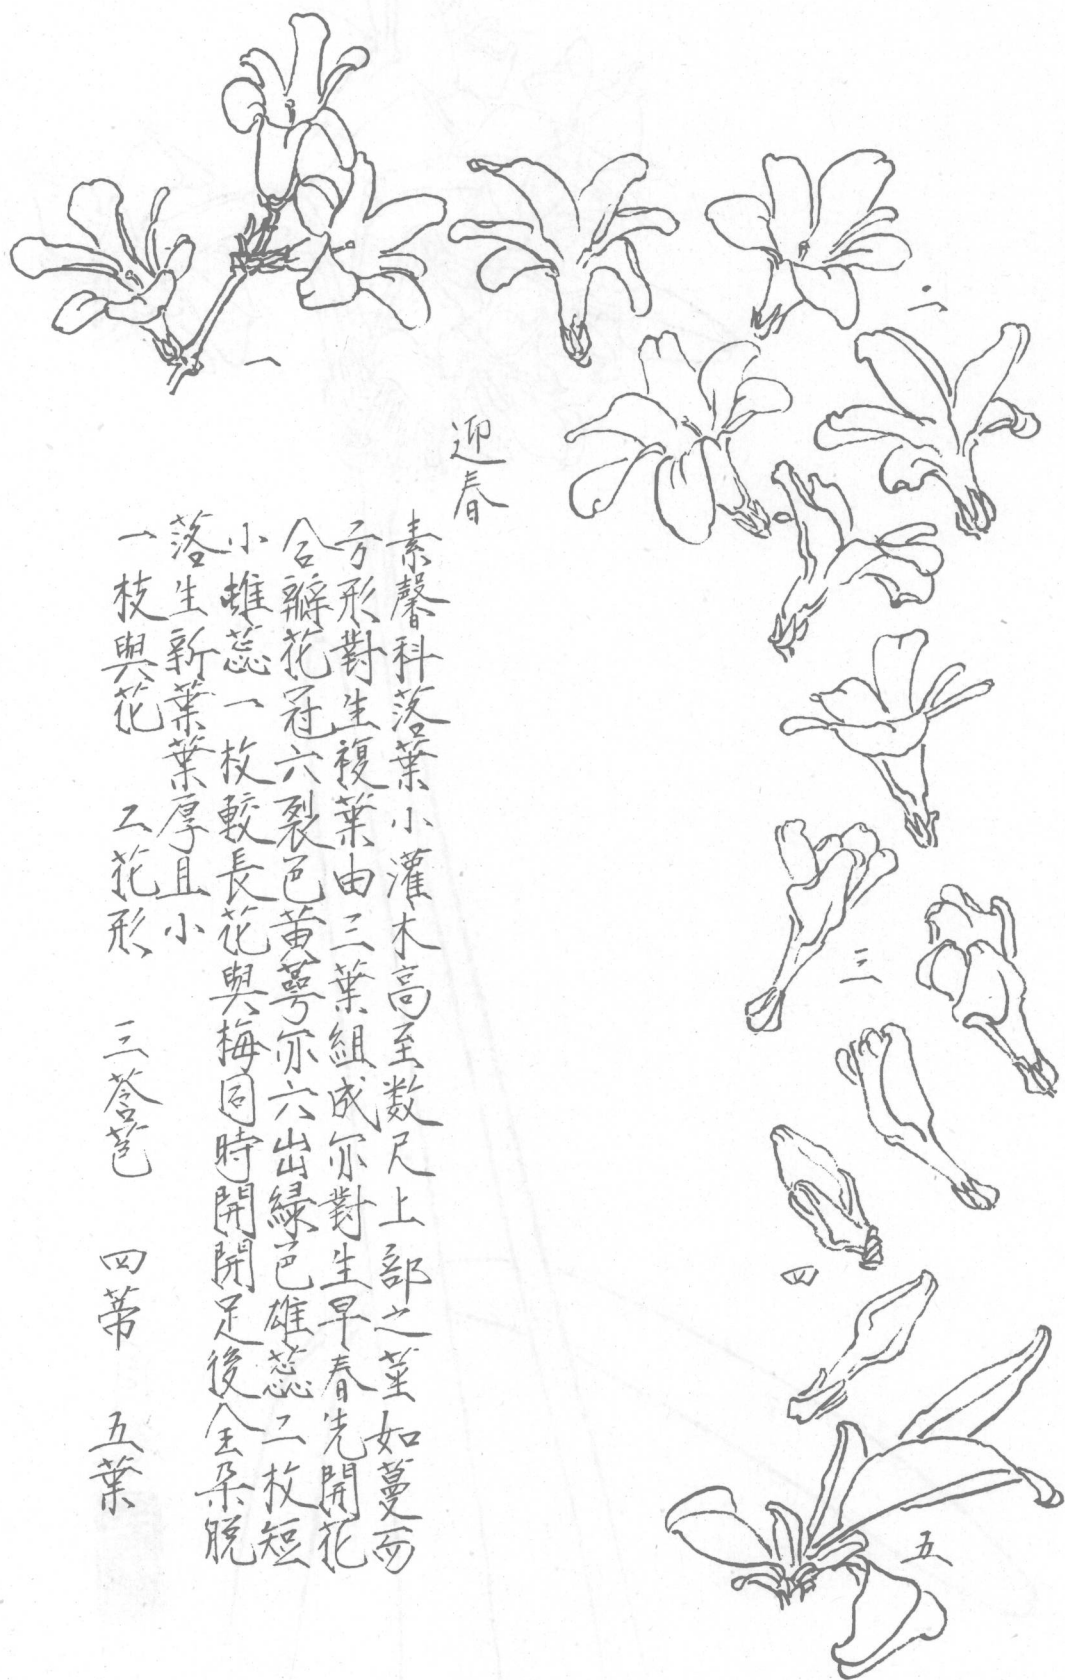 迎春
素馨科落葉小灌木高至数尺上部之莖如蔓而
方形對生複葉由三葉組成亦對生早春先開花
合瓣花冠六裂色黄萼亦六出緑色雄蕊二枚短
小雌蕊一枚較長花與梅同時開開足後全朵脱
落生新葉葉厚且小
一枝與花 二花形 三菩苞 四蒂 五葉
一
二
三
四
五